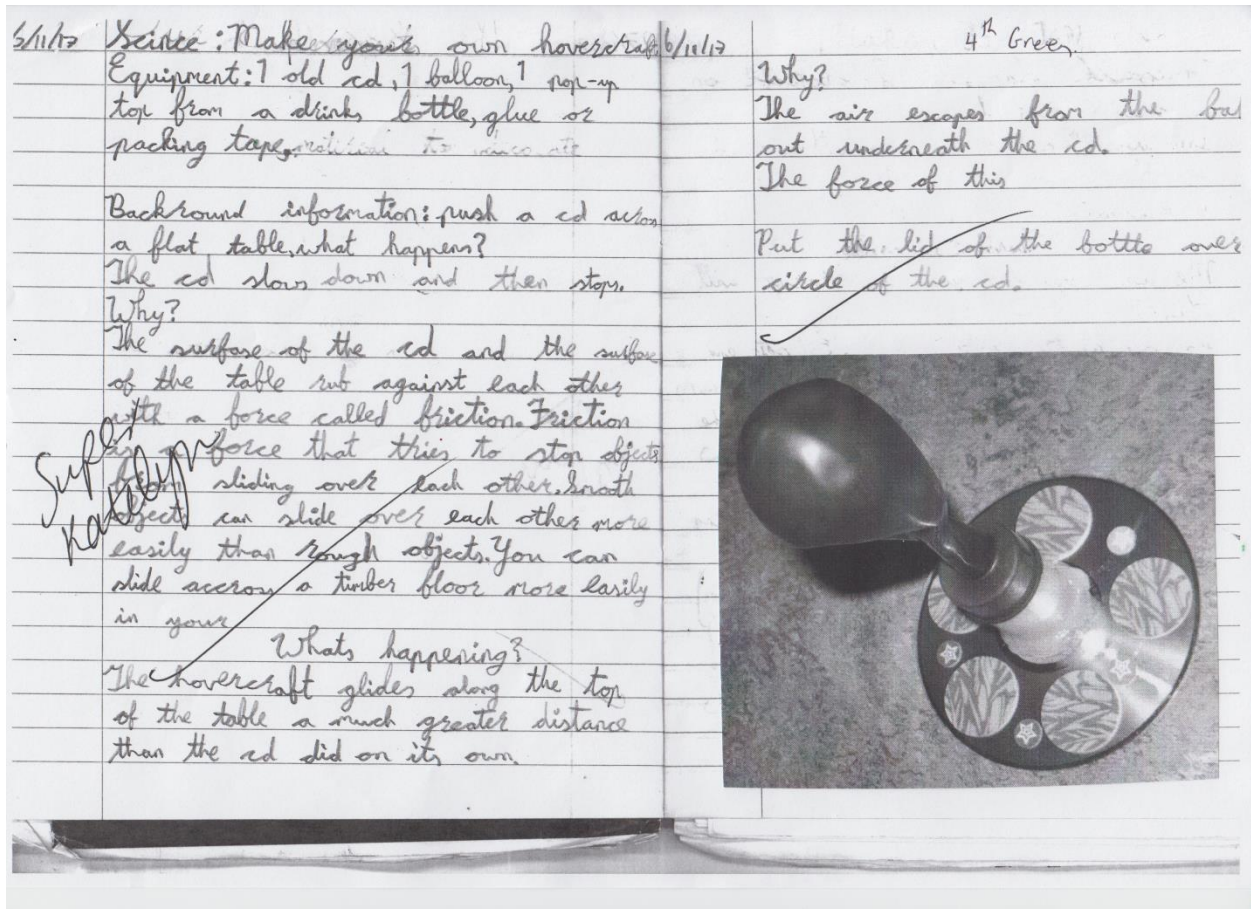 6/11/17
Scince: Make your own hovercraft
Equipment: 1 old cd, 1 balloon, 1 pop-up
top from a drinks bottle, glue or
packing tape.
Backround information: push a cd acros
a flat table, what happens?
The cd slows down and then stops.
Why?
The surfase of the cd and the surfase
of the table rub against each other
with a force called friction. Friction
is a force that tries to stop objects
from sliding over each other. Smooth
objects can slide over each other more
easily than rough objects. You can
slide accross a timber floor more easily
in your
Whats happening?
The hovercraft glides along the top
of the table a much greater distance
than the cd did on its own.
Super
Katelyn
6/11/17
4th Green
Why?
The air escapes from the bal
out underneath the cd.
The force of this
Put the lid of the bottle over
circle of the cd.